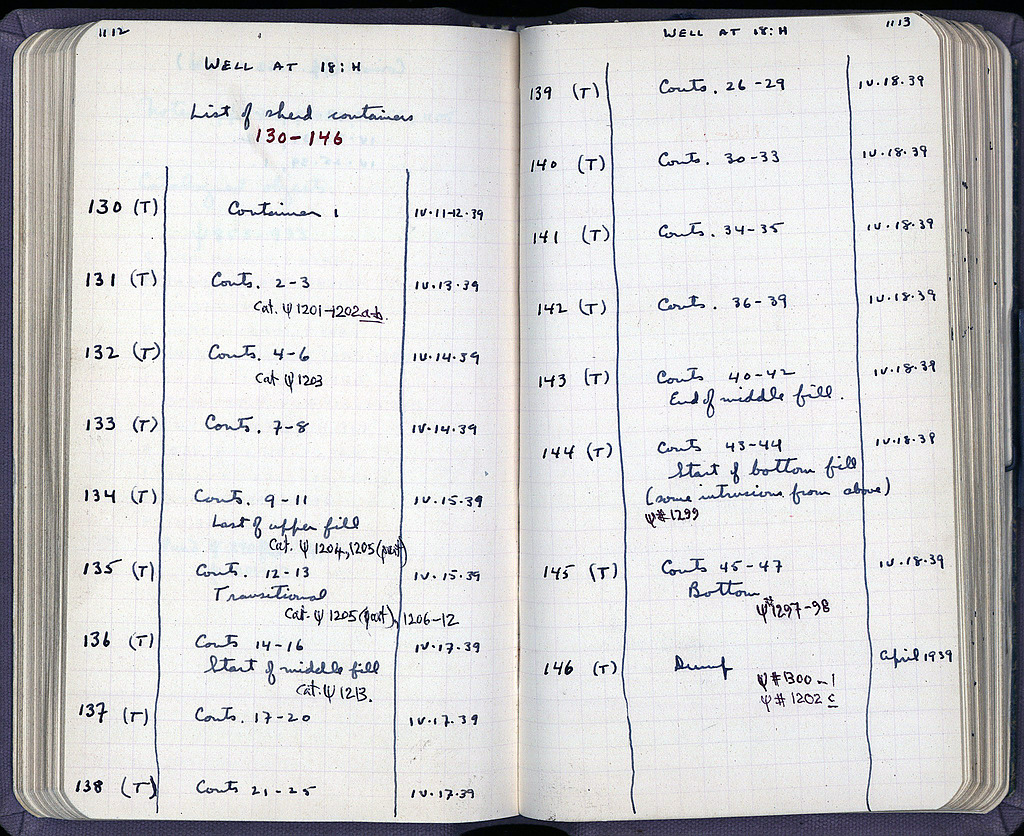 1112
WELL AT 18:H
List of sherd containers
130-146
130 (T) Container 1 IV.11-12.39
131 (T) Conts. 2-3 IV.13.39
Cat. ψ 1201-1202a-b.
132 (T) Conts. 4-6 IV.14.39
Cat ψ 1203
133 (T) Conts. 7-8 IV.14.39
134 (T) Conts. 9-11 IV.15.39
Last of upper fill
Cat. ψ 1204, 1205 (part)
135 (T) Conts. 12-13 IV.15.39
Transitional
Cat. ψ 1205 (part), 1206-12
136 (T) Conts 14-16 IV.17.39
Start of middle fill
Cat. ψ 1213.
137 (T) Conts. 17-20 IV.17.39
138 (T) Conts 21-25 IV.17.39
1113
WELL AT 18:H
139 (T) Conts. 26-29 IV.18.39
140 (T) Conts. 30-33 IV.18.39
141 (T) Conts. 34-35 IV.18.39
142 (T) Conts. 36-39 IV.18.39
143 (T) Conts 40-42 IV.18.39
End of middle fill.
144 (T) Conts 43-44 IV.18.39
Start of bottom fill
(some intrusions from above)
ψ # 1299
145 (T) Conts 45-47 IV.18.39
Bottom
ψ # 1297-98
146 (T) Dump April 1939
ψ # 1300-1
ψ # 1202 c